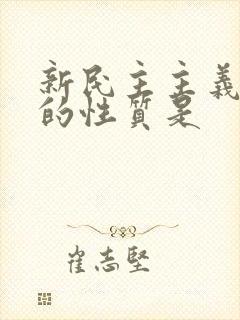 新民主主義
的性質是
崔志堅